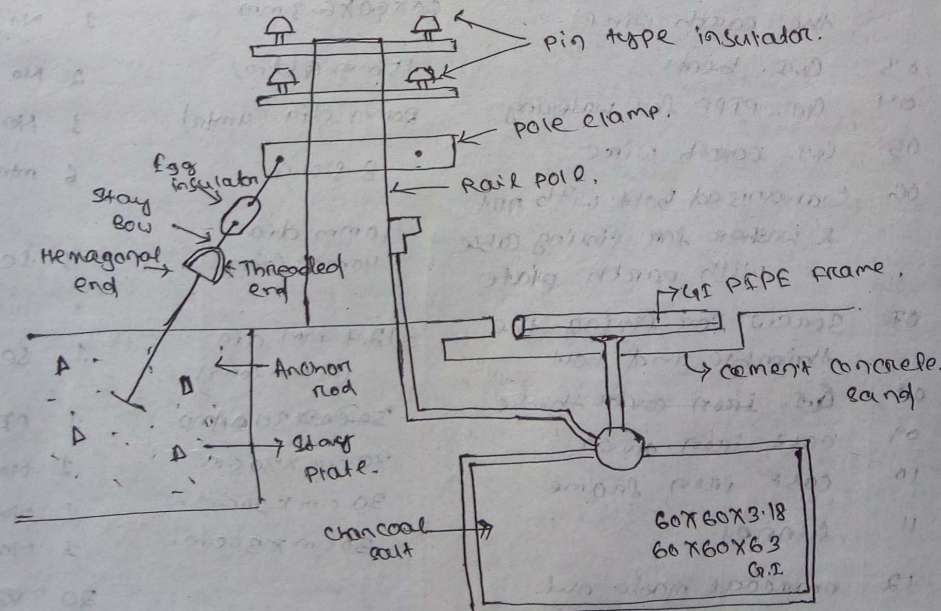 pin type insulator.
pole clamp.
Egg
insulator
Rail pole.
Stay
Bow
Hexagonal
end
Threaded
end
GI PIPE Frame.
Anchor
rod
cement concrete
sand
Stay
plate.
charcoal
salt
60X60X3.18
60X60X63
G.I